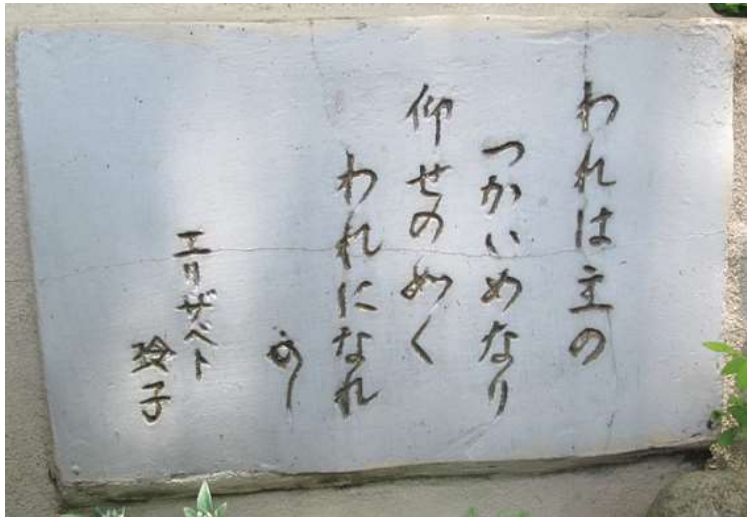 われは主の
つかいめなり
仰せの如く
われになれ
かし
エリザベト
玲子